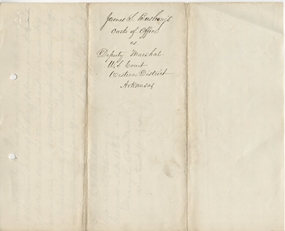 James S.
Oath of Office
as
Deputy Marshal
U.S. Court
Western District
Arkansas